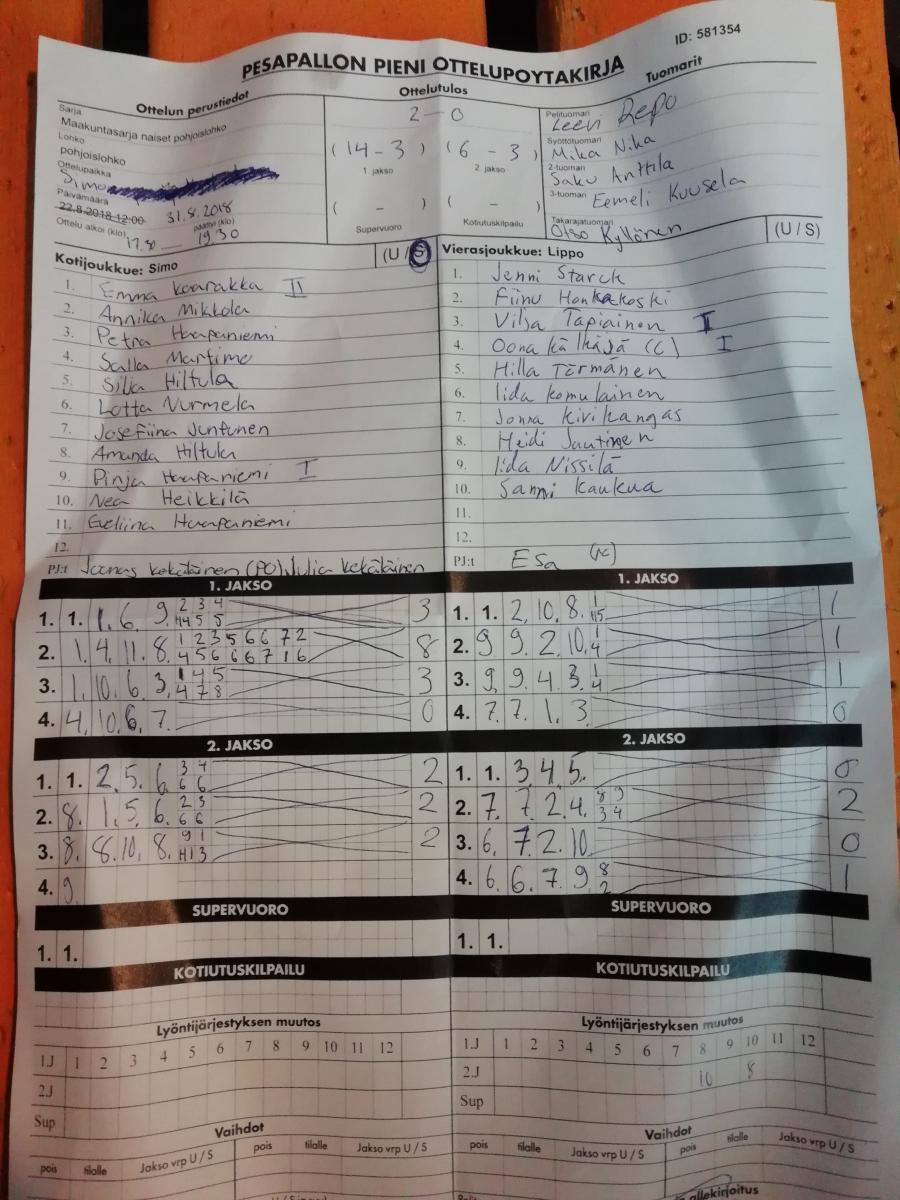 ID: 581354
PESÄPALLON PIENI OTTELUPÖYTÄKIRJA
Ottelun perustiedot
Sarja
Maakuntasarja naiset pohjoislohko
Lohko
pohjoislohko
Ottelupaikka
Simo
Päivämäärä
22.8.2018 12:00 31.8.2018
Ottelu alkoi (klo) 17.8 päättyi (klo) 19.30
Ottelutulos
2 - 0
( 14 - 3 ) ( 6 - 3 )
1. jakso 2. jakso
( - ) ( - )
Supervuoro Kotiutuskilpailu
Tuomarit
Pelituomari
Leevi Repo
Syöttötuomari
Mika Nika
2-tuomari
Saku Anttila
3-tuomari
Eemeli Kuusela
Takarajatuomari
Otso Kyllönen
Kotijoukkue: Simo (U / S)
1. Emma Kaarakka II
2. Annika Mikkola
3. Petra Haapaniemi
4. Salla Martimo
5. Silja Hiltula
6. Lotta Nurmela
7. Josefiina Juntunen
8. Amanda Hiltula
9. Pinja Haapaniemi I
10. Nea Heikkilä
11. Eveliina Haapaniemi
12.
PJ:t Joonas Kekäläinen (PO), Julia Kekäläinen
Vierasjoukkue: Lippo (U / S)
1. Jenni Starck
2. Fiinu Honkakoski
3. Vilja Tapiainen I
4. Oona Kälkäjä (C) I
5. Hilla Törmänen
6. Iida Komulainen
7. Jonna Kivikangas
8. Heidi Juutinen
9. Iida Nissilä
10. Sanni Kaukua
11.
12.
PJ:t Esa
1. JAKSO
1. 1. 1. 6. 9. 2 3 4 3
2. 1. 4. 11. 8. 1 2 3 5 6 6 7 2 8
4 5 6 6 6 7 1 6
3. 1. 10. 6. 3. 1 4 5 3
4 7 8
4. 4. 10. 6. 7. 0
1. JAKSO
1. 1. 2. 10. 8. 1 1
2. 9. 9. 2. 10. 1 1
4
3. 9. 9. 4. 3. 1 1
4
4. 7. 7. 1. 3. 0
2. JAKSO
1. 1. 2. 5. 6. 3 4 2
6 6
2. 8. 1. 5. 6. 2 5 2
6 6
3. 8. 8. 10. 8. 9 1 2
4. 9.
2. JAKSO
1. 1. 3. 4. 5. 0
2. 7. 7. 2. 4. 8 9 2
3 4
3. 6. 7. 2. 10. 0
4. 6. 6. 7. 9. 8 1
2
SUPERVUORO
1. 1.
SUPERVUORO
1. 1.
KOTIUTUSKILPAILU
KOTIUTUSKILPAILU
Lyöntijärjestyksen muutos
1.J 1 2 3 4 5 6 7 8 9 10 11 12
2.J
Sup
Lyöntijärjestyksen muutos
1.J 1 2 3 4 5 6 7 8 9 10 11 12
2.J 10 8
Sup
Vaihdot
pois tilalle Jakso vrp U / S pois tilalle Jakso vrp U / S
Vaihdot
pois tilalle Jakso vrp U / S pois tilalle Jakso vrp U / S
allekirjoitus